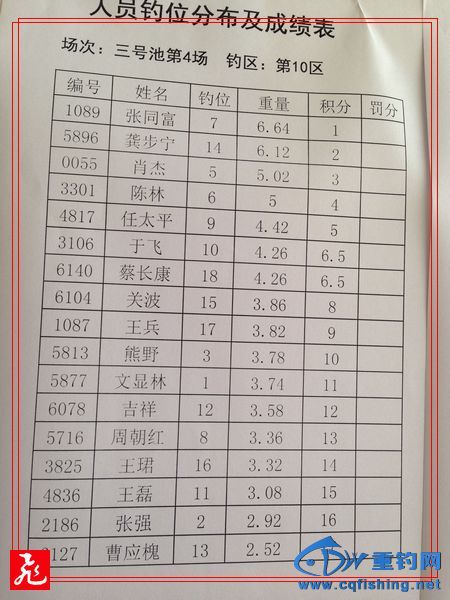 人员钓位分布及成绩表
场次：三号池第4场 钓区：第10区
编号 姓名 钓位 重量 积分 罚分
1089 张同富 7 6.64 1
5896 龚步宁 14 6.12 2
0055 肖杰 5 5.02 3
3301 陈林 6 5 4
4817 任太平 9 4.42 5
3106 于飞 10 4.26 6.5
6140 蔡长康 18 4.26 6.5
6104 关波 15 3.86 8
1087 王兵 17 3.82 9
5813 熊野 3 3.78 10
5877 文显林 1 3.74 11
6078 吉祥 12 3.58 12
5716 周朝红 8 3.36 13
3825 王珺 16 3.32 14
4836 王磊 11 3.08 15
2186 张强 2 2.92 16
127 曹应槐 13 2.52
重钓网
www.cqfishing.net